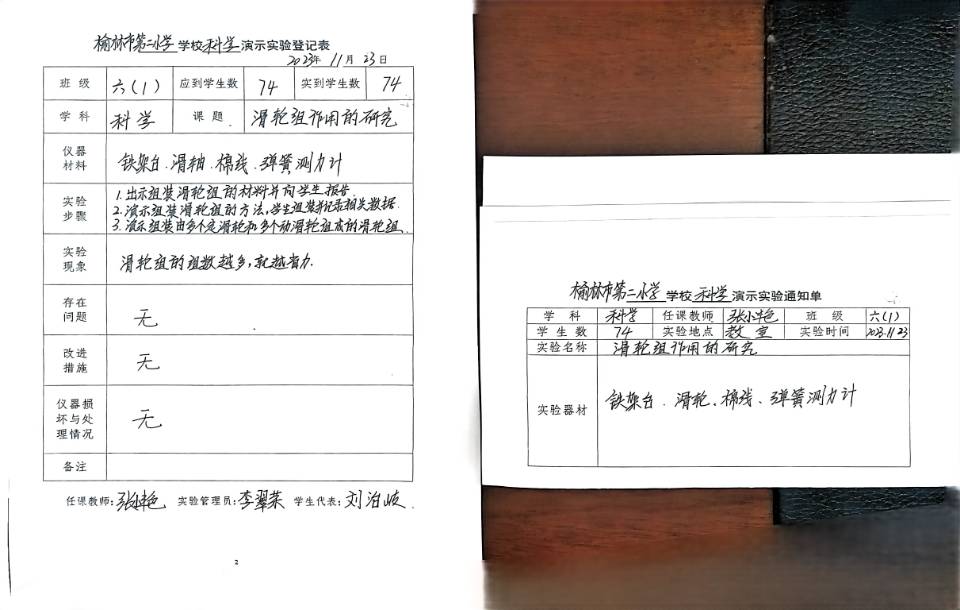 榆林市第二小学 学校 科学 演示实验登记表
2023年 11月 23日
班级 六(1) 应到学生数 74 实到学生数 74
学科 科学 课题 滑轮组作用的研究
仪器材料 铁架台、滑轴、棉线、弹簧测力计
实验步骤 1.出示组装滑轮组的材料并向学生报告.
2.演示组装滑轮组的方法,学生组装并记录相关数据.
3.演示组装由多个定滑轮和多个动滑轮组成的滑轮组.
实验现象 滑轮组的组数越多,就越省力.
存在问题 无
改进措施 无
仪器损坏与处理情况 无
备注
任课教师: 实验管理员:李翠 学生代表:刘泊
2
榆林市第二小学 学校 科学 演示实验通知单
学科 科学 任课教师 班级 六(1)
学生数 74 实验地点 教室 实验时间 2023.11.23
实验名称 滑轮组作用的研究
实验器材 铁架台、滑轮、棉线、弹簧测力计